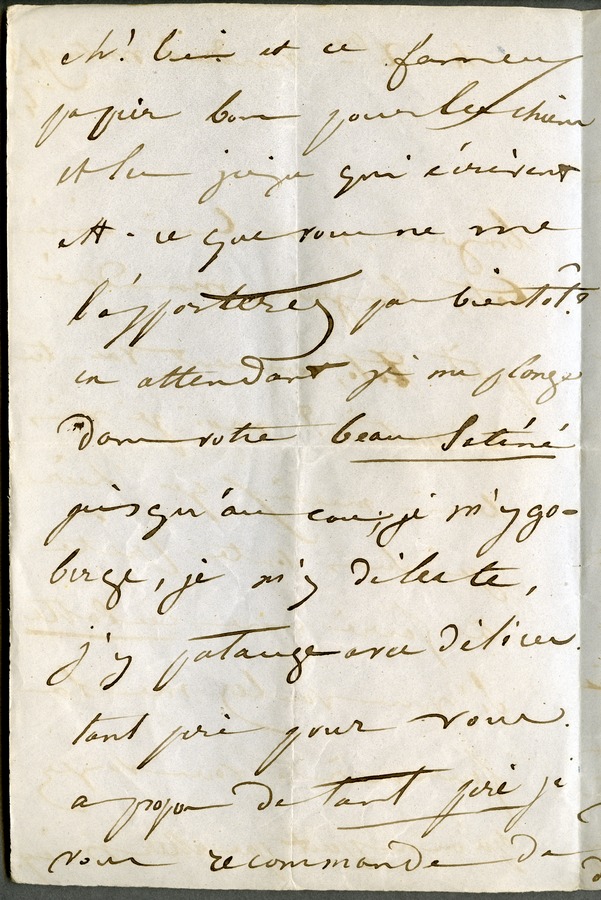 eh! bien et ce fameux
papier bon pour les chiens
et les juifs qui écrivent
est-ce que vous ne me
l'apporterez pas bientôt?
en attendant je me plonge
dans votre beau Satiné
jusqu'au cou, je m'y go-
berge, je m'y délecte,
j'y patauge avec délices.
tant pis pour vous.
a propos de tant pis je
vous recommande de